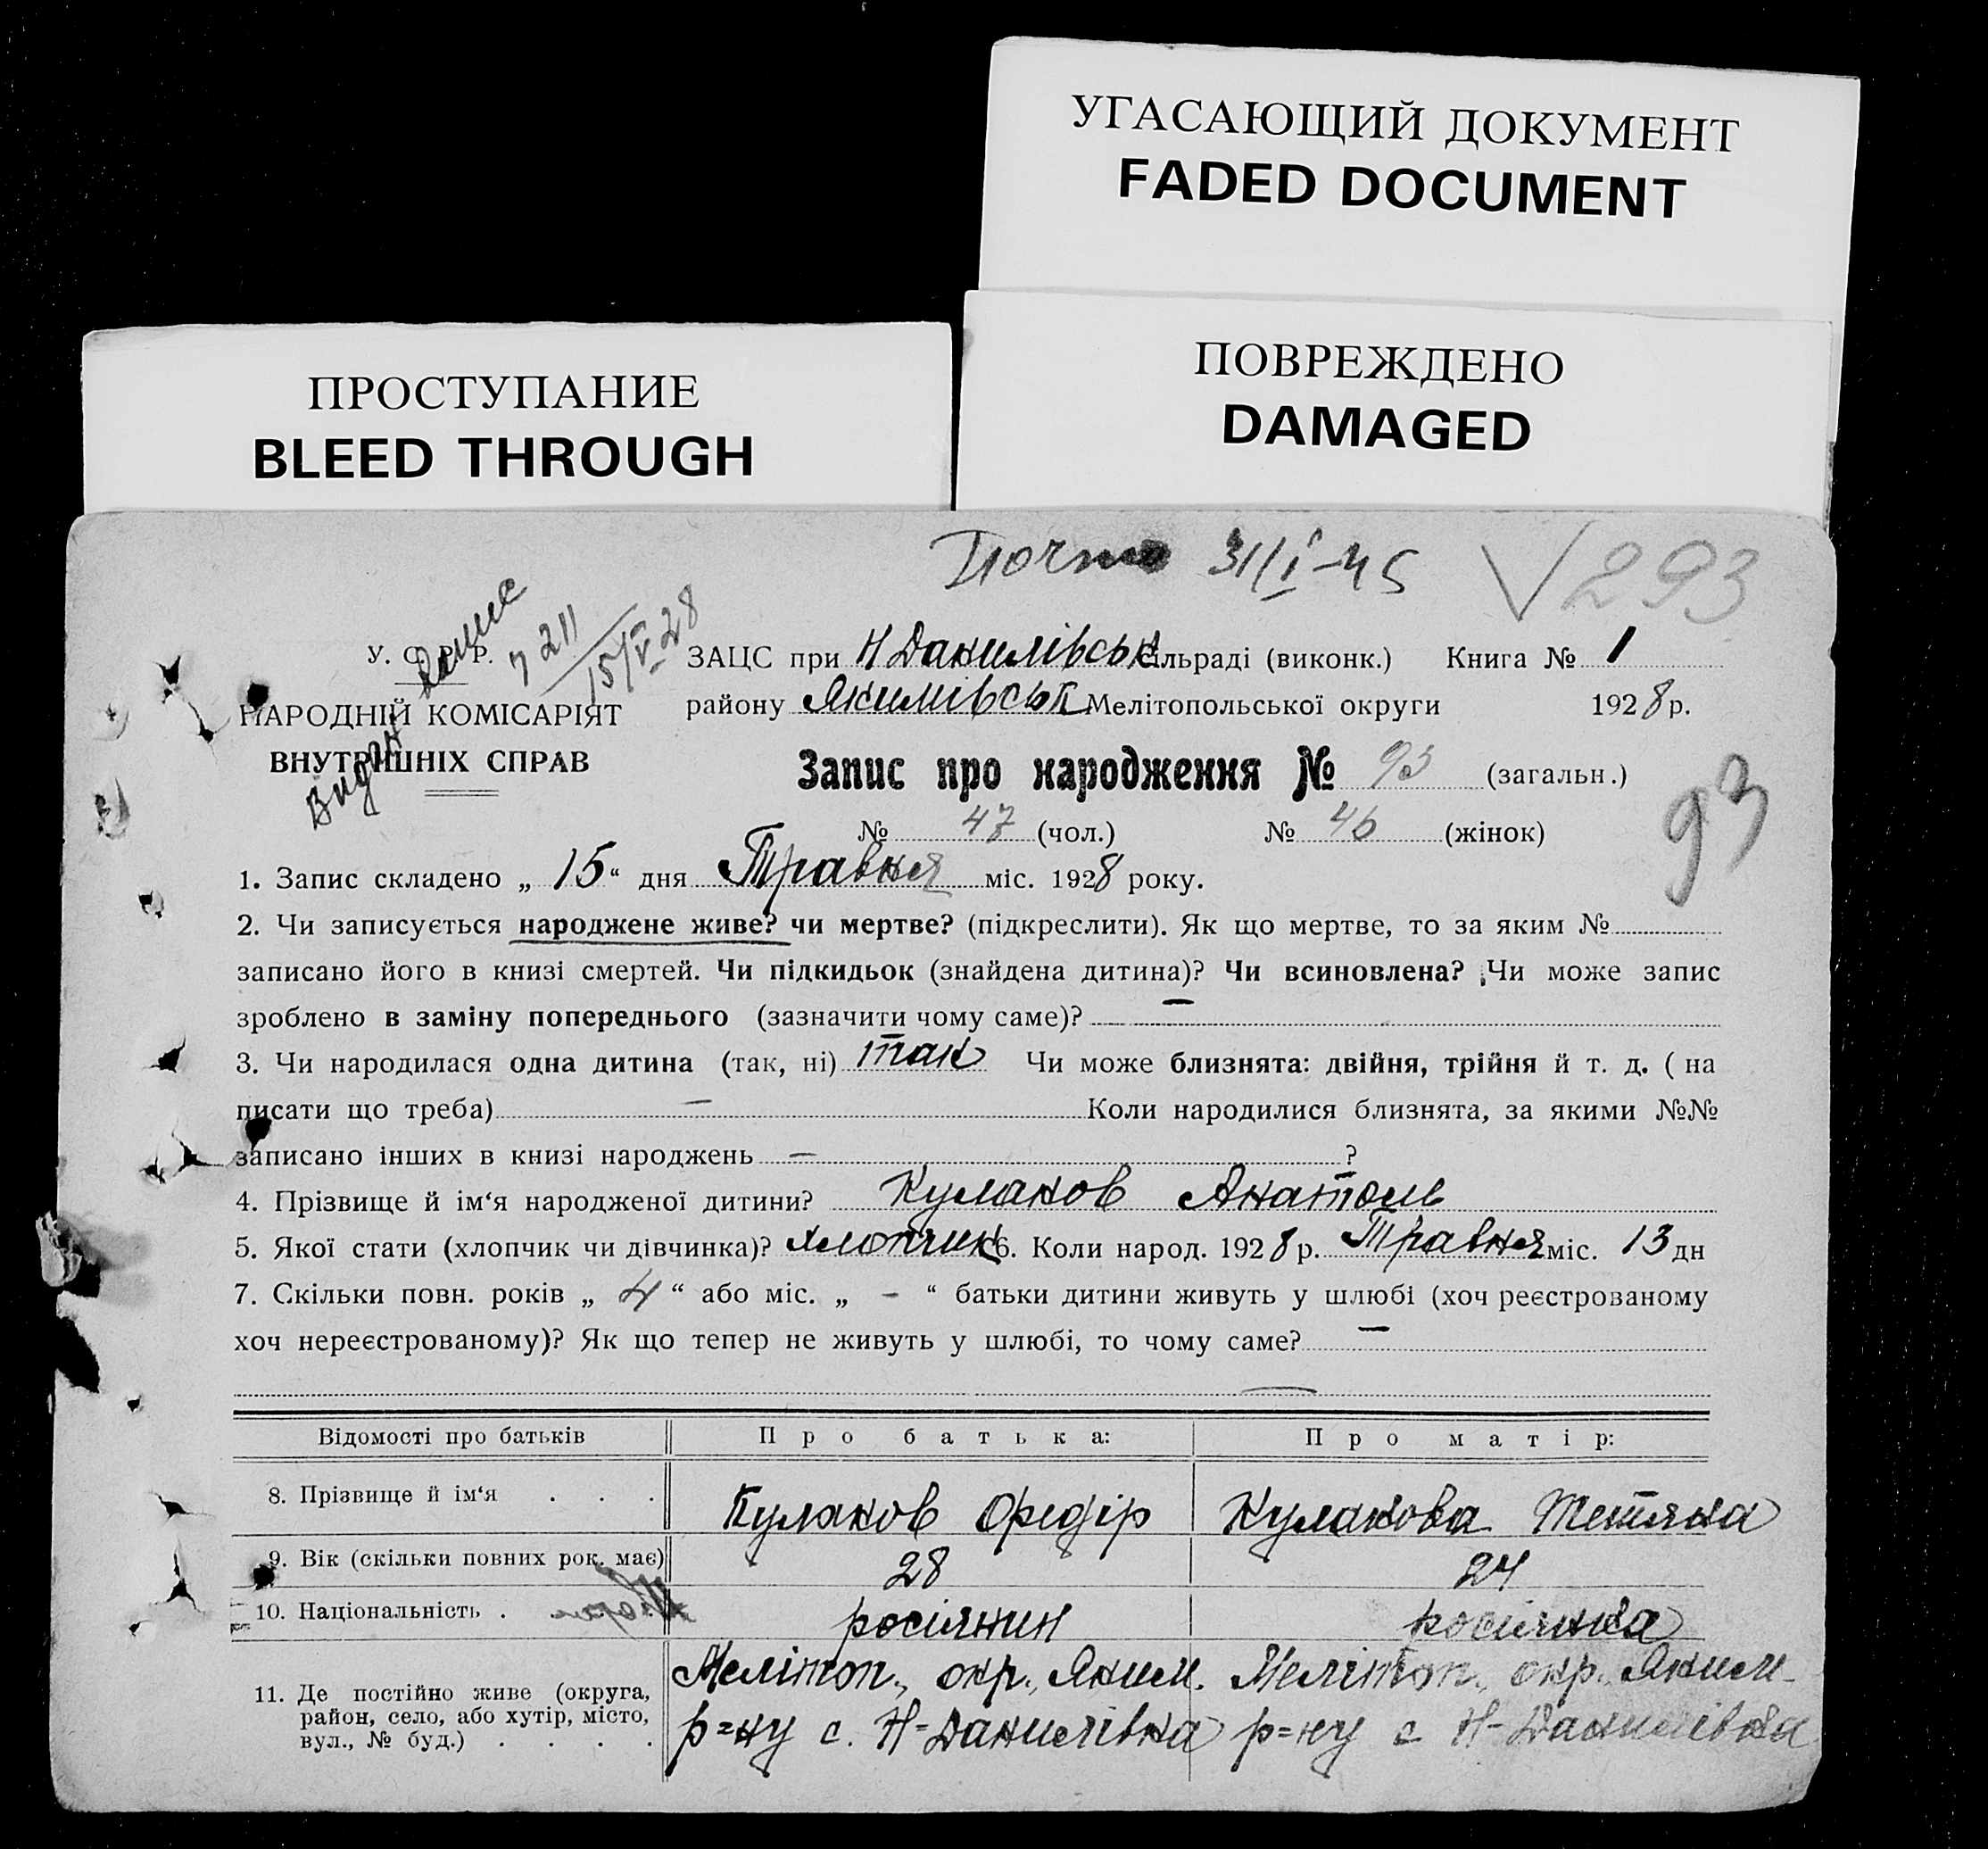 УГАСАЮЩИЙ ДОКУМЕНТ
FADED DOCUMENT
ПОВРЕЖДЕНО
DAMAGED
ПРОСТУПАНИЕ
BLEED THROUGH
31/I-45 √293
У. С. Р. Р.
Видан 211 15/V 28
НАРОДНІЙ КОМІСАРІЯТ
ВНУТРІШНІХ СПРАВ
ЗАЦС при Н Данилівськ сільраді (виконк.) Книга № 1
району Якимівськ Мелітопольської округи 1928 р.
Запис про народження № 93 (загальн.)
93
№ 47 (чол.) № 46 (жінок)
1. Запис складено „ 15 “ дня Травня міс. 1928 року.
2. Чи записується народжене живе? чи мертве? (підкреслити). Як що мертве, то за яким №
записано його в книзі смертей. Чи підкидьок (знайдена дитина)? Чи всиновлена? Чи може запис
зроблено в заміну попереднього (зазначити чому саме)? —
3. Чи народилася одна дитина (так, ні) так Чи може близнята: двійня, трійня й т. д. ( на
писати що треба) — Коли народилися близнята, за якими №№
записано інших в книзі народжень — ?
4. Прізвище й ім‘я народженої дитини? Кулаков Анатоль
5. Якої стати (хлопчик чи дівчинка)? Хлопчик 6. Коли народ. 1928 р. Травня міс. 13 дн
7. Скільки повн. років „ 4 “ або міс. „ - “ батьки дитини живуть у шлюбі (хоч реєстрованому
хоч нереєстрованому)? Як що тепер не живуть у шлюбі, то чому саме? —
—
Відомості про батьків Про батька: Про матір:
8. Прізвище й ім‘я . . . Кулаков Федір Кулакова Тетяна
9. Вік (скільки повних рок. має) 28 24
10. Національність . росіянин росіянка
11. Де постійно живе (округа, район, село, або хутір, місто, вул., № буд.) . . . .
Мелітоп., окр., Яким. Мелітоп., окр., Яким-
р=ну с. Н=Данилівка р=ну с Н-Данилівка